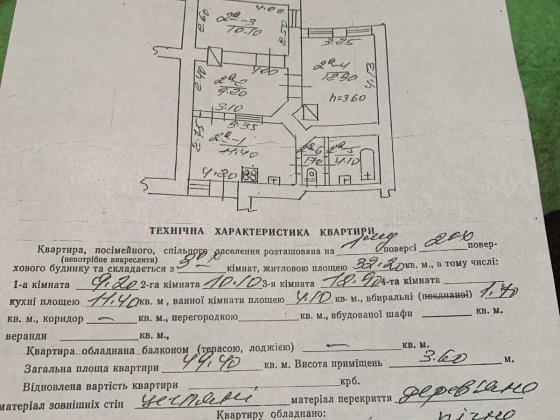 4.00
2.60
2ª-3
10.10
2.50
3.25
4.00
2ª-4
12.90
4.13
h=3.60
2.40
9.20
3.10
3.35
2.75
2ª-1
11.40
4.20
1.70
4.10
ТЕХНІЧНА ХАРАКТЕРИСТИКА КВАРТИРИ
Квартира, посімейного, спільного заселення розташована на поверсі повер-
(непотрібне викреслити)
хового будинку та складається з кімнат, житловою площею 32.20 кв. м., в тому числі:
1-а кімната 9.20 2-га кімната 10.10 3-я кімната 12.90 4-та кімната
кухні площею 11.40 кв. м., ванної кімнати площею 4.10 кв. м., вбиральні (поєднаної) 1.70
кв. м., коридор — кв. м., перегородкою кв. м., вбудованої шафи кв. м.,
веранди кв. м.,
Квартира обладнана балконом (терасою, лоджією) — кв. м.
Загальна площа квартири 49.40 кв. м. Висота приміщень 3.60 м.
Відновлена вартість квартири крб.
матеріал зовнішніх стін матеріал перекриття
Квартиру обладнано: